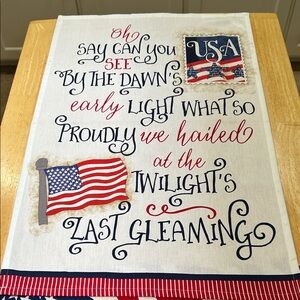 Oh
SAY CAN YOU
USA
SEE
BY THE DAWN'S
early LIGHT WHAT SO
PROUDLY we hailed
at the
TWILIGHT'S
LAST GLEAMING